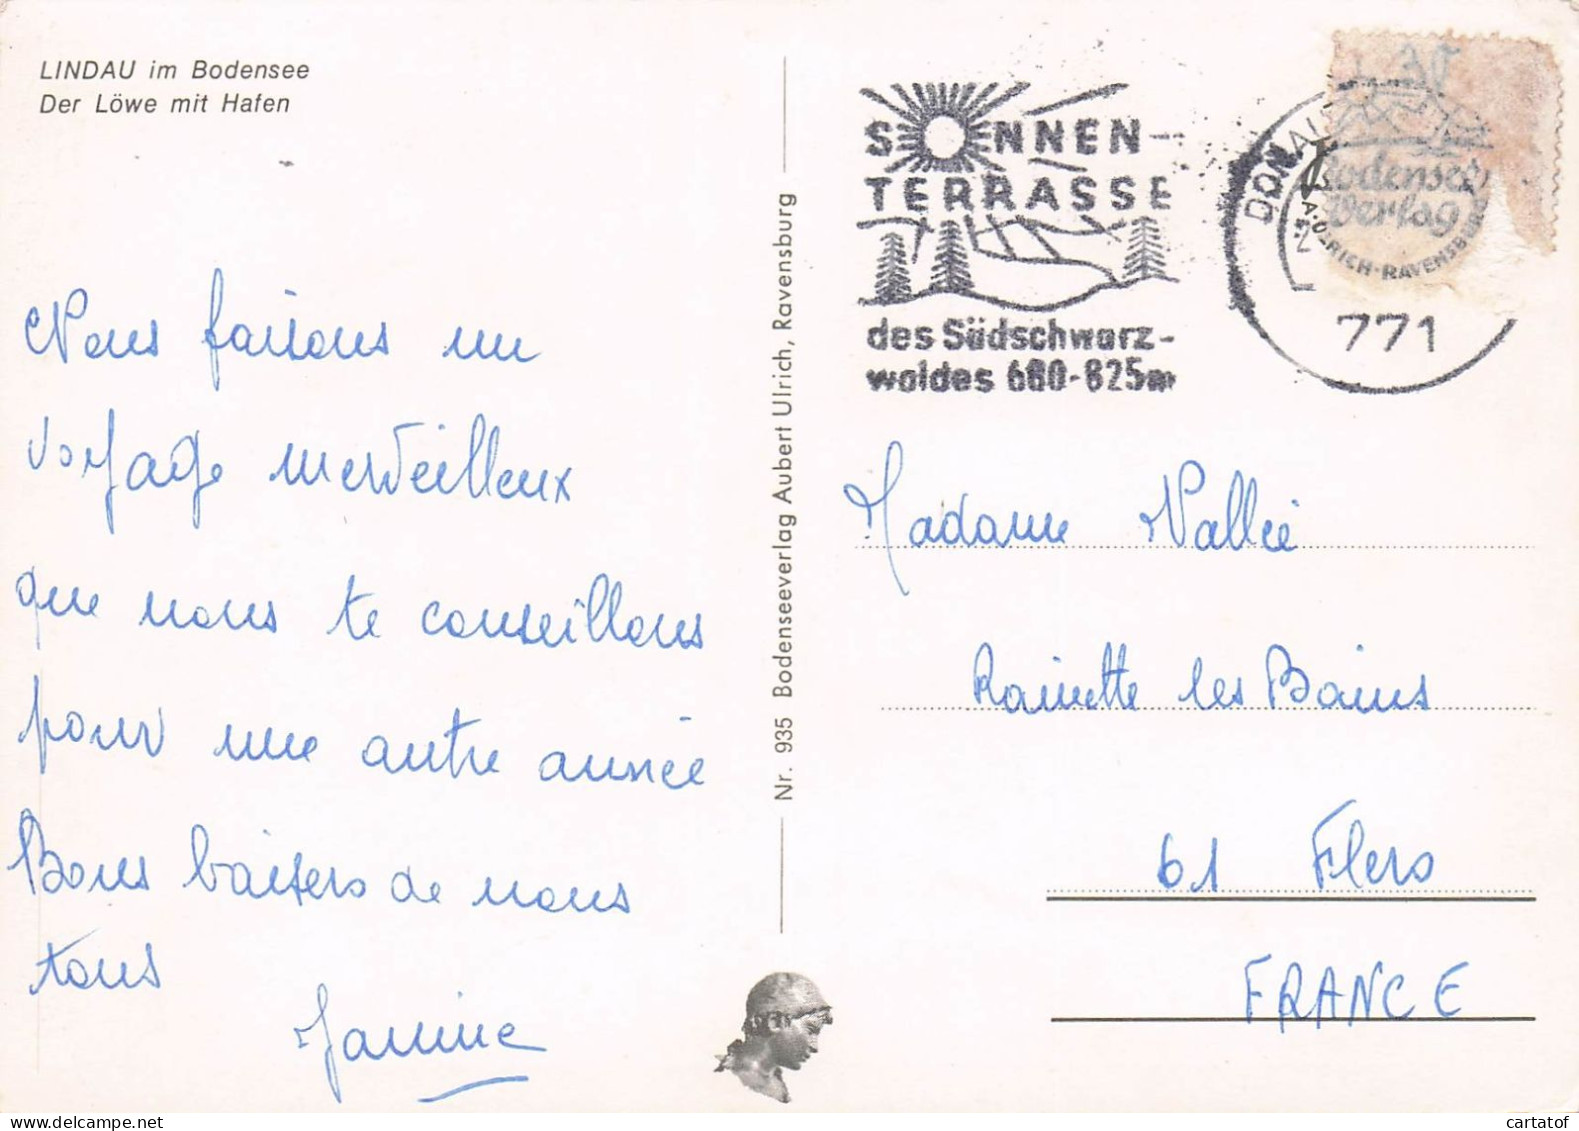 LINDAU im Bodensee
Der Löwe mit Hafen
Nous faisons un
voyage merveilleux
que nous te conseillons
pour une autre année
Bons baisers de nous
tous
Janine
Nr. 935 Bodenseeverlag Aubert Ulrich, Ravensburg
SONNEN-
TERRASSE
des Südschwarz-
waldes 660-825m
Bodensee
Verlag
RICH-RAVENSB
771
Madame Vallée
les Bains
61 Flers
FRANCE
cartatof